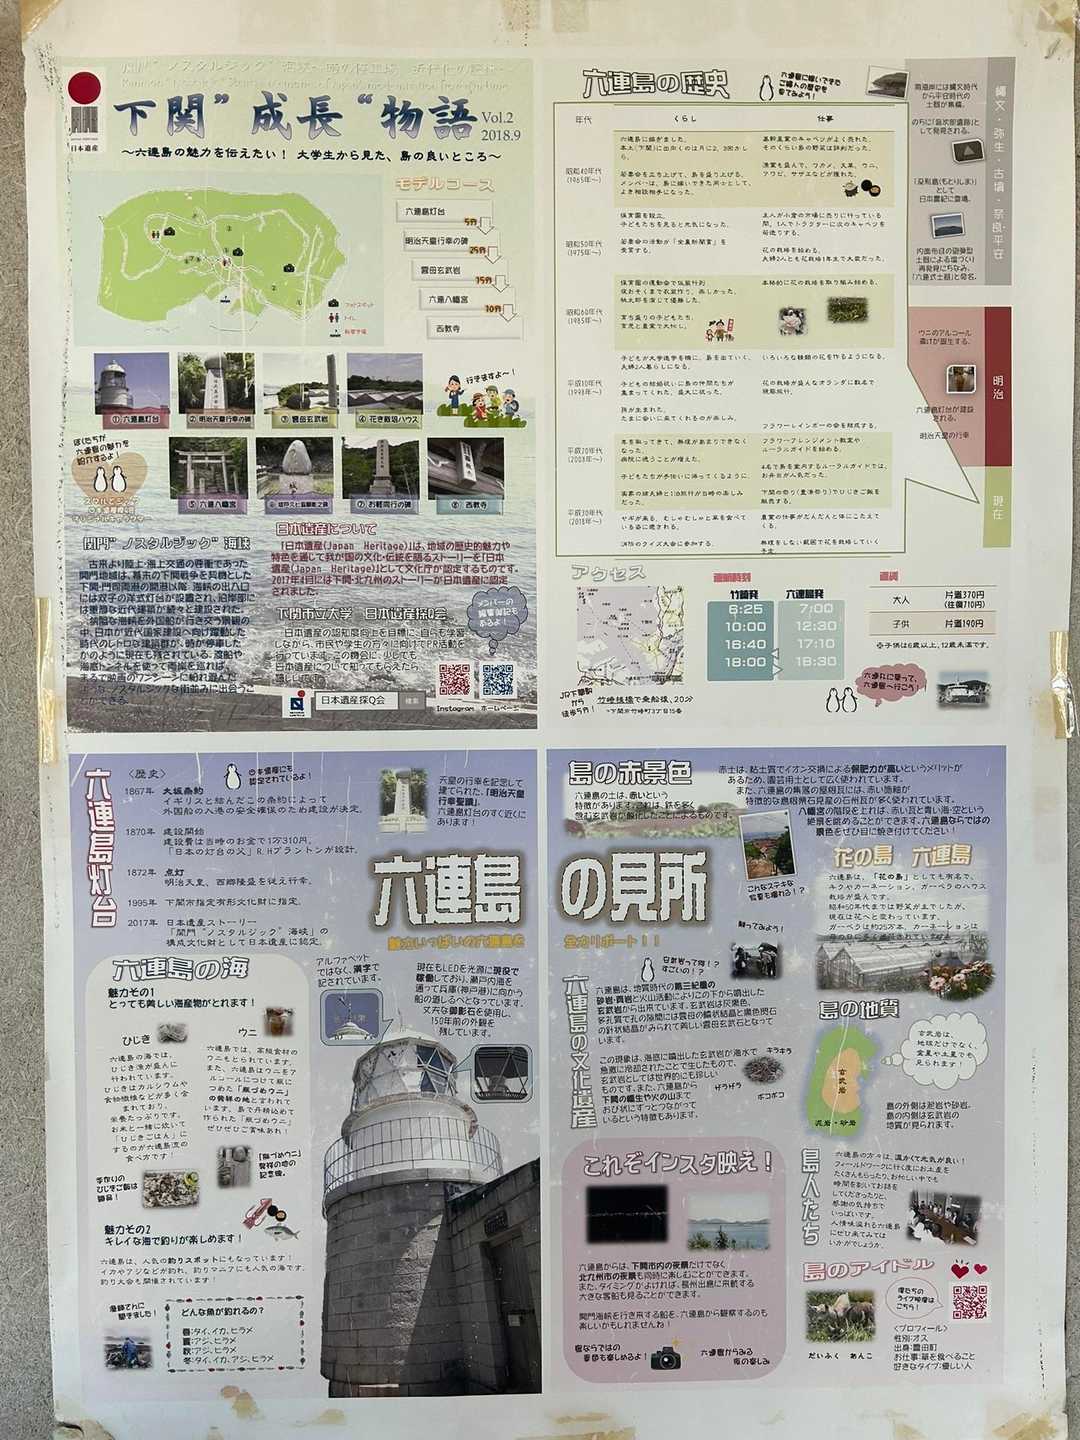 日本遺産
下関”成長“物語 Vol.2
2018.9
～六連島の魅力を伝えたい！ 大学生から見た、島の良いところ～
モデルコース
六連島灯台
5分
明治天皇行幸の碑
25分
雲母玄武岩
15分
六連八幡宮
10分
西教寺
フォトスポット
トイレ
駐車場
①六連島灯台
②明治天皇行幸の碑
③雲母玄武岩
④花き栽培ハウス
行きますよ～！
ぼくたちが
六連島の魅力を
紹介するよ！
⑤六連八幡宮
⑦お軽同行の碑
⑧西教寺
関門”ノスタルジック“海峡
古来より陸上・海上交通の要衝であった
関門地域は、幕末の下関戦争を契機とした
下関・門司両港の開港以降、海峡の出入口
には双子の洋式灯台が設置され、沿岸部に
は重厚な近代建築が続々と建設された。
狭隘な海峡を外国船が行き交う景観の
中、日本が近代国家建設へ向け躍動した
時代のレトロな建築群が、時が停車した
かのように現在も残されている。渡船や
海底トンネルを使って両岸を巡れば、
まるで映画のワンシーンに紛れ込んだ
ようなノスタルジックな街並みに出会うこ
とができる。
日本遺産について
「日本遺産(Japan Heritage)」は、地域の歴史的魅力や
特色を通じて我が国の文化・伝統を語るストーリーを「日本
遺産(Japan Heritage)」として文化庁が認定するものです。
2017年4月には下関・北九州のストーリーが日本遺産に認定
されました。
下関市立大学 日本遺産探Q会
日本遺産の認知度向上を目標に、自らも学習
しながら、市民や学生の方々に向けてPR活動を
行っています。この機会に、少しでも
日本遺産について知ってもらえたら
嬉しいです。
日本遺産探Q会 検索
Instagram ホームページ
六連島の歴史
六連島に嫁いできた
ご婦人の歴史を
見てみよう！
年代 くらし 仕事
昭和40年代
(1965年～)
六連島に嫁がきました。
本土(下関)に出向くのは月に2、3回から。
若妻会を立ち上げて、島を盛り上げる。
メンバーは、島に嫁いできた同士として、
よき相談相手になった。
基幹産業のキャベツがよく売れた。
そのくらい島の野菜は評判だった。
漁業も盛んで、ワカメ、天草、ウニ、
アワビ、サザエなどが獲れた。
昭和50年代
(1975年～)
保育園を設立。
子どもたちを見ると元気になった。
若妻会の活動が「全農新聞賞」を
受賞する。
花の栽培を始める。
夫婦2人とも花栽培1年生で大変だった。
昭和60年代
(1985年～)
保育園の運動会で仮装行列
夜おそくまで衣装作り、楽しかった。
桃太郎を演じて優勝した。
育ち盛りの子どもたち、
育児と農業で大忙し。
本格的に花の栽培を取り組み始める。
子どもが大学進学を機に、島を出ていく。
夫婦2人暮らしになる。
いろいろな種類の花を作るようになる。
平成10年代
(1998年～)
子どもの結婚祝いに島の仲間たちが
集まってくれた。盛大に祝った。
孫が生まれた。
たまに会いに来てくれるのが楽しみ。
花の栽培が盛んなオランダに数名で
視察旅行。
フラワーレインボーの会を結成する。
平成20年代
(2008年～)
年を取ってきて、無理があまりできなく
なった。
病院に通うことが増えた。
子どもたちが手伝いに帰ってくるように。
フラワーアレンジメント教室や
ルーラルガイドを始める。
4名で島を案内するルーラルガイドでは、
お弁当が人気だった。
平成30年代
(2018年～)
ヤギが来る。むしゃむしゃと草を食べて
いる姿に癒される。
消防のクイズ大会に参加する。
農業の仕事がだんだんと体にこたえてくる。
無理をしない範囲で花を栽培していく
予定。
縄文・弥生・古墳・奈良・平安
南海岸には縄文時代
から平安時代の
土器が集積。
のちに「音次郎遺跡」と
して発見される。
「没利島(もとりしま)」
として
日本書紀に登場。
明治
ウニのアルコール
漬けが誕生する。
六連島灯台が建設
される。
明治天皇の行幸
現在
アクセス
運航時刻
竹崎発 六連島発
6:25 7:00
10:00 12:30
16:40 17:10
18:00 18:30
運賃
大人 片道370円
(往復710円)
子供 片道190円
※子供は6歳以上、12歳未満です。
JR下関駅
から
徒歩5分！
竹崎桟橋で乗船後、20分
六連丸に乗って、
六連島へ行こう！！
六連島灯台
〈歴史〉
日本遺産にも
認定されているよ！
1867年 大坂条約
イギリスと結んだこの条約によって
外国船の入港の安全確保のため建設が決定。
1870年 建設開始
建設費は当時のお金で1万310円。
「日本の灯台の父」R.Hブラントンが設計。
1872年 点灯
明治天皇、西郷隆盛を従え行幸。
1995年 下関市指定有形文化財に指定。
2017年 日本遺産ストーリー
「関門“ノスタルジック”海峡」の
構成文化財として日本遺産に認定。
天皇の行幸を記念して
建てられた、「明治天皇
行幸聖蹟」。
六連島灯台のすぐ近くに
あります！
六連島の見所
魅力いっぱいの六連島を
全力リポート！！
アルファベット
ではなく、漢字で
記されています。
現在もLEDを光源に現役で
稼働しており、瀬戸内海を
通って兵庫(神戸港)に向かう
船の道しるべとなっています。
丈夫な御影石を使用し、
150年前の外観を
残しています。
六連島の海
魅力その1
とっても美しい海産物がとれます！
ひじき
六連島の海では、
ひじき漁が盛んに
行われています。
ひじきはカルシウムや
食物繊維などが多く含
まれており、
栄養たっぷりです。
お米と一緒に炊いて
「ひじきごはん」に
するのが六連島流の
食べ方です！
ウニ
六連島では、高級食材の
ウニもとられています。
また、六連島はウニをア
ルコールにつけて瓶に
つめた「瓶づめウニ」
の発祥の地と言われて
います。島で丹精込めて
作られた「瓶づめウニ」
ぜひぜひご賞味あれ！
「瓶づめウニ」
発祥の地の
記念碑。
手作りの
ひじきご飯は
絶品！
魅力その2
キレイな海で釣りが楽しめます！
六連島は、人気の釣りスポットにもなっています！
イカやアジなどが釣れ、釣りマニアにも人気の海です。
釣り大会も開催されています！
漁師さんに
聞きました！
どんな魚が釣れるの？
春:タイ、イカ、ヒラメ
夏:アジ、ヒラメ
秋:アジ、ヒラメ
冬:タイ、イカ、アジ、ヒラメ
島の赤景色
六連島の土は、赤いという
特徴があります。これは、鉄を多く
含む玄武岩が酸化したことによるものです。
赤土は、粘土質でイオン交換による保肥力が高いというメリットが
あるため、園芸用土として広く使われています。
また、六連島の集落の屋根瓦には、赤い施釉が
特徴的な島根県石見産の石州瓦が多く使われています。
八幡宮の階段を上れば、赤い瓦と青い海・空という
絶景を眺めることができます。六連島ならではの
景色をぜひ目に焼き付けてください！
こんなステキな
写真も撮れる！？
花の島 六連島
六連島は、「花の島」としても有名で、
キクやカーネーション、ガーベラのハウス
栽培が盛んです。
昭和50年代までは野菜が主でしたが、
現在は花へと変わっています。
ガーベラは約25万本、カーネーションは
六連島の文化遺産
雲母岩って何！？
すごいの！？
触ってみよう！
六連島は、地質時代の第三紀層の
砂岩・頁岩と火山活動によりこの下から噴出した
玄武岩から出来ています。玄武岩は灰黒色、
多孔質で孔の隙間には雲母の鱗状結晶と黒色閃石
の針状結晶がみられて美しい雲母玄武石となって
います。
この現象は、海底に噴出した玄武岩が海水で
急激に冷却されたことで生じたもので、
玄武岩としては世界的にも珍しい
ものです。また、六連島から
下関の幡生や火の山まで
おび状にずっとつながって
いるという特徴もあります。
キラキラ
ザラザラ
ボコボコ
島の地質
玄武岩
泥岩・砂岩
玄武岩は、
地球だけでなく、
金星や土星でも
見られます！
島の外側は泥岩や砂岩。
島の内側は玄武岩の
地質が見られます。
これぞインスタ映え！
六連島からは、下関市内の夜景だけでなく
北九州市の夜景も同時に楽しむことができます。
また、タイミングがよければ、長州出島に来航する
大きな客船も見ることができます。
関門海峡を行き来する船を、六連島から観察するのも
楽しいかもしれませんね！
島ならではの
景色も楽しめるよ！
六連島からみる
夜の楽しみ
島人たち
六連島の方々は、温かくて元気が良い！
フィールドワークに行く度にお土産を
たくさんもらったり、お忙しい中でも
時間を割いてお話を
してくださったりと、
感謝の気持ちで
いっぱいです。
人情味溢れる六連島
にぜひ来てみては
いかがでしょうか。
島のアイドル
俺たちの
ライブ映像は
こちら！
だいふく あんこ
〈プロフィール〉
性別:オス
出身:豊田町
お仕事:草を食べること
好きなタイプ:優しい人